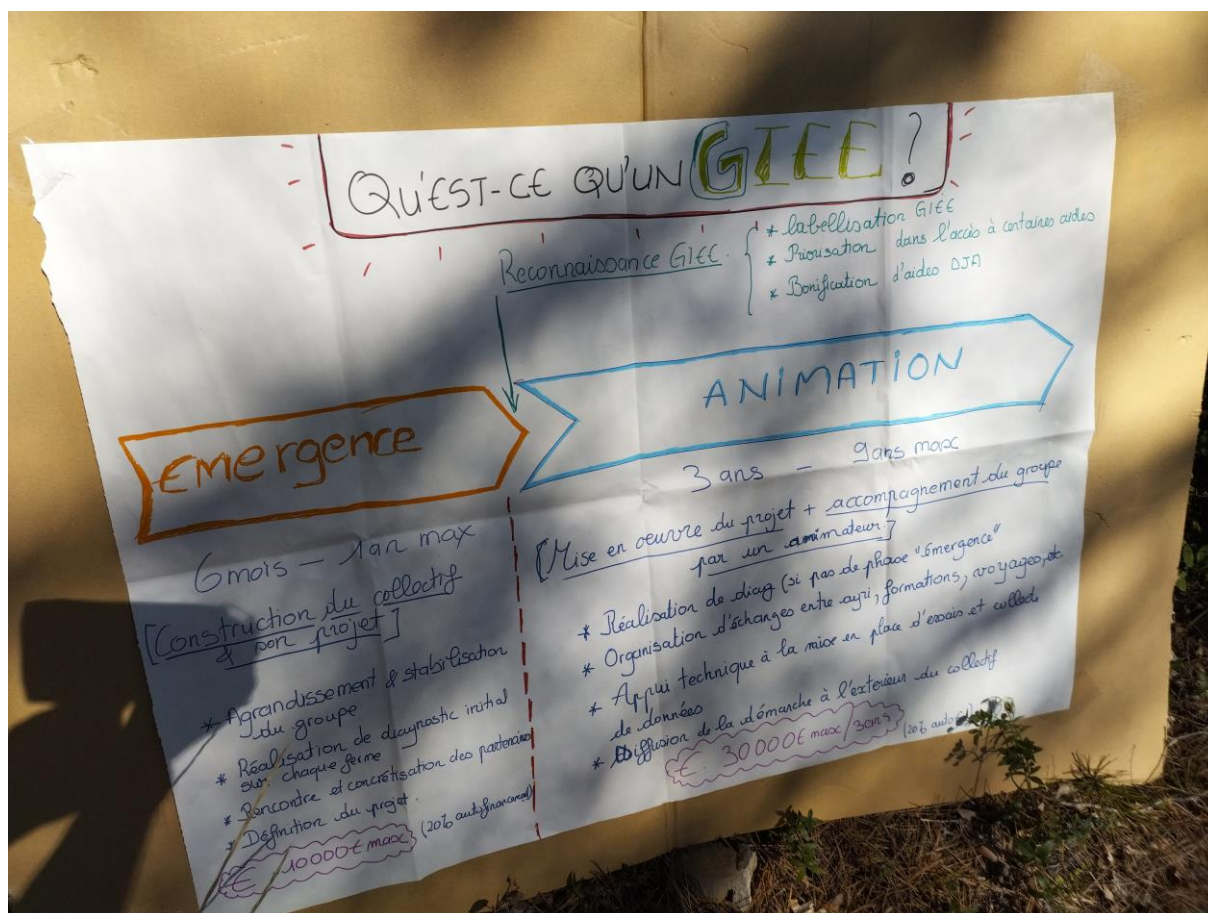 QU'EST-CE QU'UN GIEE ?
Reconnaissance GIEE.
* labellisation GIEE
* Priorisation dans l'accès à certaines aides
* Bonification d'aides DJA
EMergence
6 mois - 1 an max
[Construction du collectif
& son projet]
* Agrandissement & stabilisation
du groupe
* Réalisation de diagnostic initial
sur chaque ferme
* Rencontre et concrétisation des partenaires
* Définition du projet.
€ 10 000 € max (20% autofinancement)
ANIMATION
3 ans - 9 ans max
[Mise en oeuvre du projet + accompagnement du groupe
par un animateur.]
* Réalisation de diag (si pas de phase "émergence"
* Organisation d'échanges entre agri, formations, voyages, etc
* Appui technique à la mise en place d'essais et collecte
de données
* Diffusion de la démarche à l'exterieur du collectif
€. 30 000 € max / 3 ans (20%